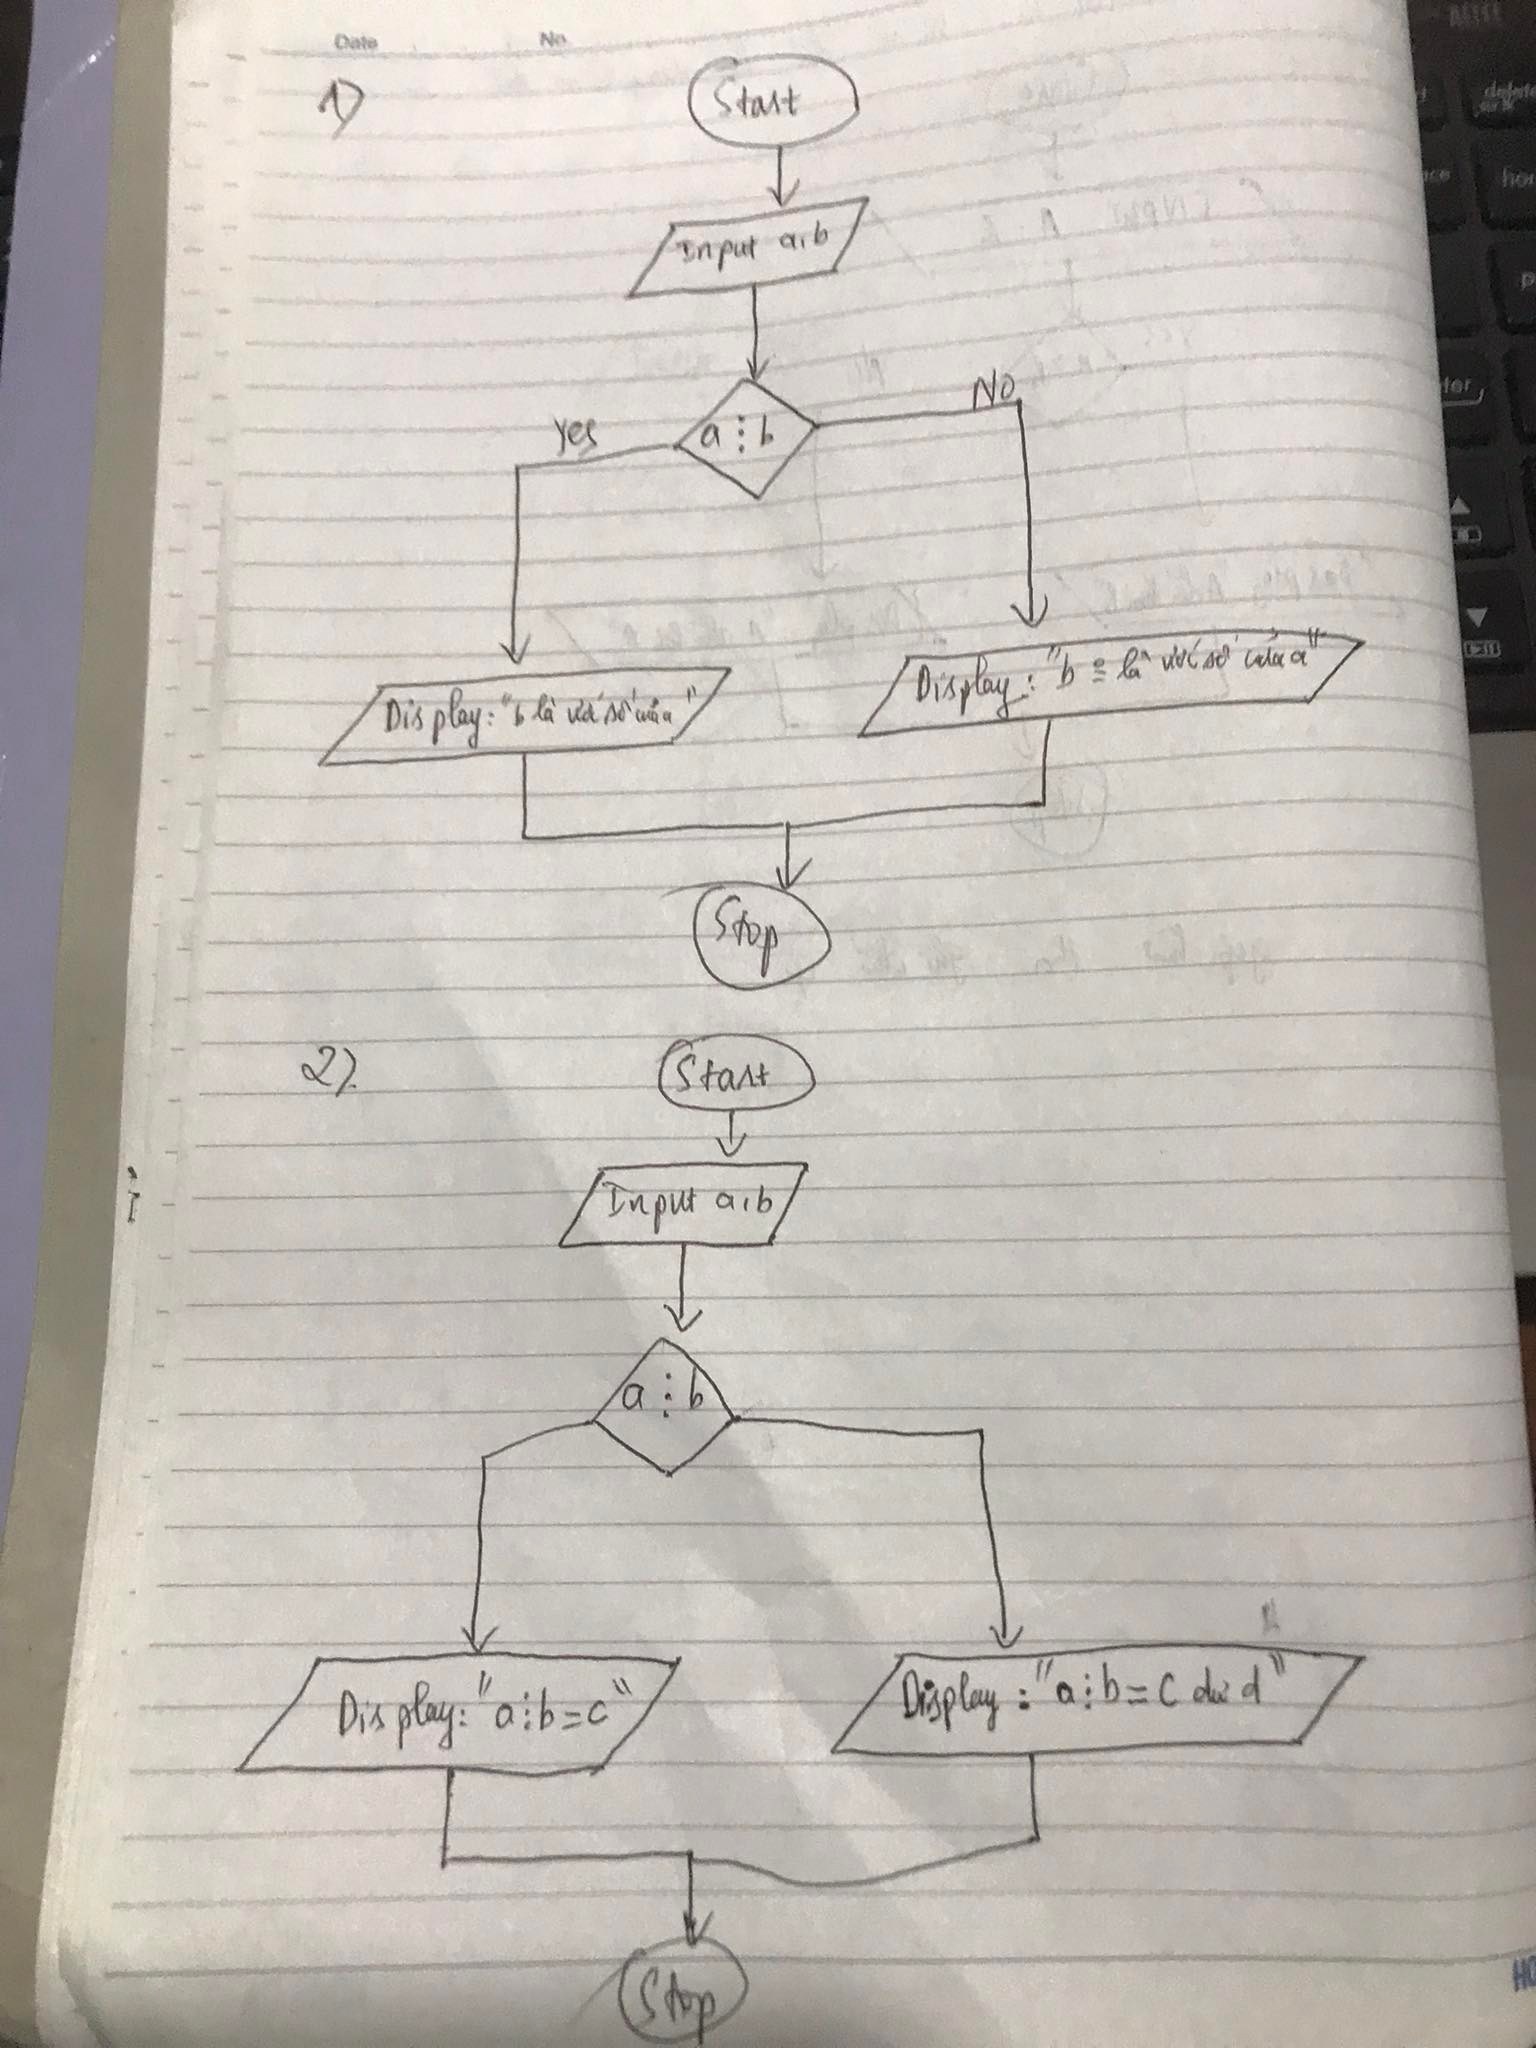 Date No
1)
Start
Input a,b
a ⋮ b
Yes
NO
Display: "b là ước số của a"
Display: "b là ước số của a"
Stop
2)
Start
Input a,b
a ⋮ b
Display: "a⋮b=c"
Display: "a⋮b=c dư d"
Stop
delete
home